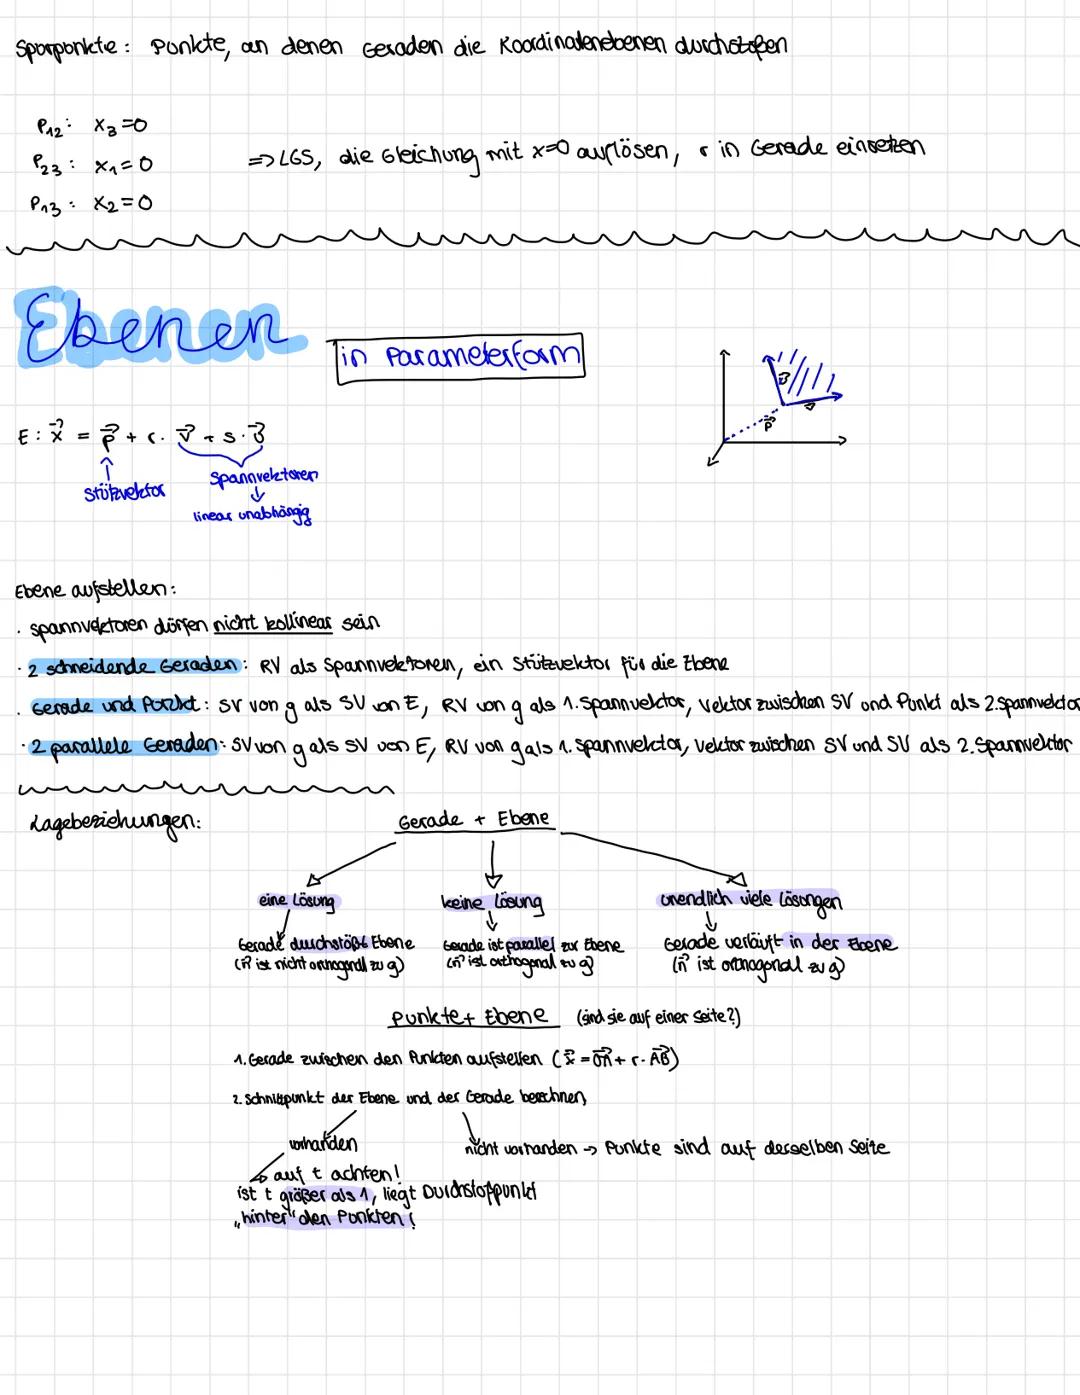 Spurpunkte: Punkte, an denen Geraden die Koordinatenebenen durchstoßen
P₁₂: x₃=0
P₂₃: x₁=0
=> LGS, die Gleichung mit x=0 auflösen, r in Gerade einsetzen
P₁₃: x₂=0
Ebenen
in Parameterform
E: x⃗ = p⃗ + r · v⃗ + s · u⃗
Stützvektor
Spannvektoren
linear unabhängig
Ebene aufstellen:
· Spannvektoren dürfen nicht kollinear sein
· 2 schneidende Geraden: RV als Spannvektoren, ein Stützvektor für die Ebene
· Gerade und Punkt: SV von g als SV von E, RV von g als 1. Spannvektor, Vektor zwischen SV und Punkt als 2. Spannvektor
· 2 parallele Geraden: SV von g als SV von E, RV von g als 1. Spannvektor, Vektor zwischen SV und SV als 2. Spannvektor
Lagebeziehungen:
Gerade + Ebene
eine Lösung
keine Lösung
unendlich viele Lösungen
Gerade durchstößt Ebene
(n⃗ ist nicht orthogonal zu g)
Gerade ist parallel zur Ebene
(n⃗ ist orthogonal zu g)
Gerade verläuft in der Ebene
(n⃗ ist orthogonal zu g)
Punkte + Ebene (sind sie auf einer Seite?)
1. Gerade zwischen den Punkten aufstellen (x⃗ = OA⃗ + r · AB⃗)
2. Schnittpunkt der Ebene und der Gerade berechnen,
vorhanden
nicht vorhanden -> Punkte sind auf derselben Seite
↳ auf t achten!
ist t größer als 1, liegt Durchstoßpunkt
„hinter" den Punkten!